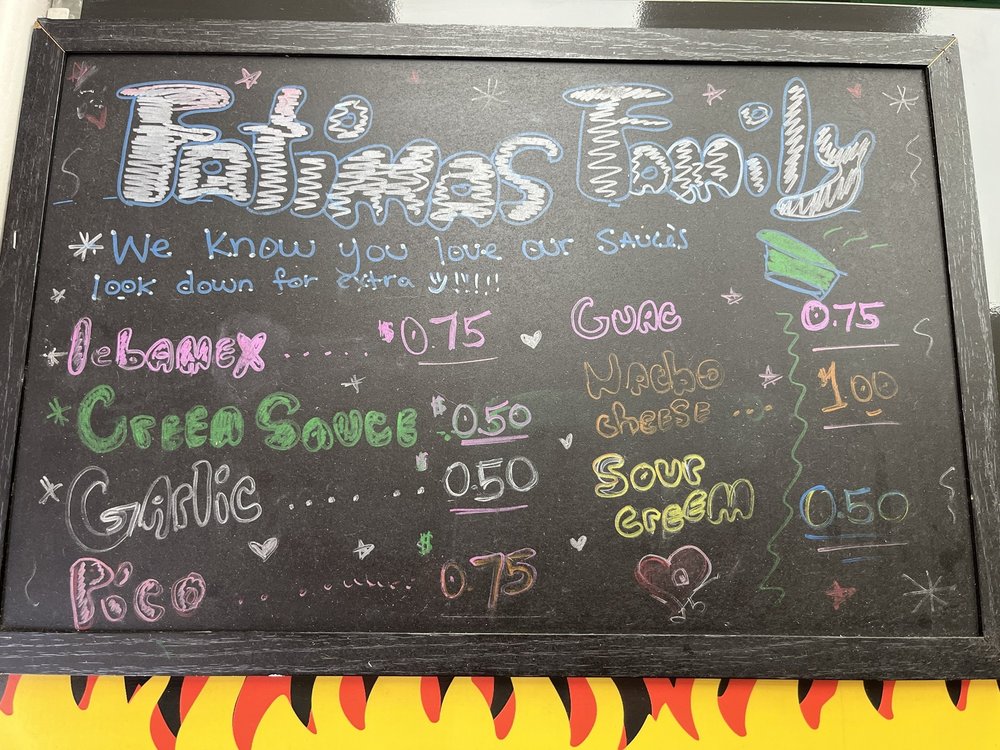 Fatimas Family
We know you love our sauces
look down for extra !!!!!
lebamex ...... $0.75
Green Sauce $0.50
Garlic ........ 0.50
Pico ........ $0.75
Guac 0.75
Nacho
cheese ... 1.00
Sour
creem 0.50